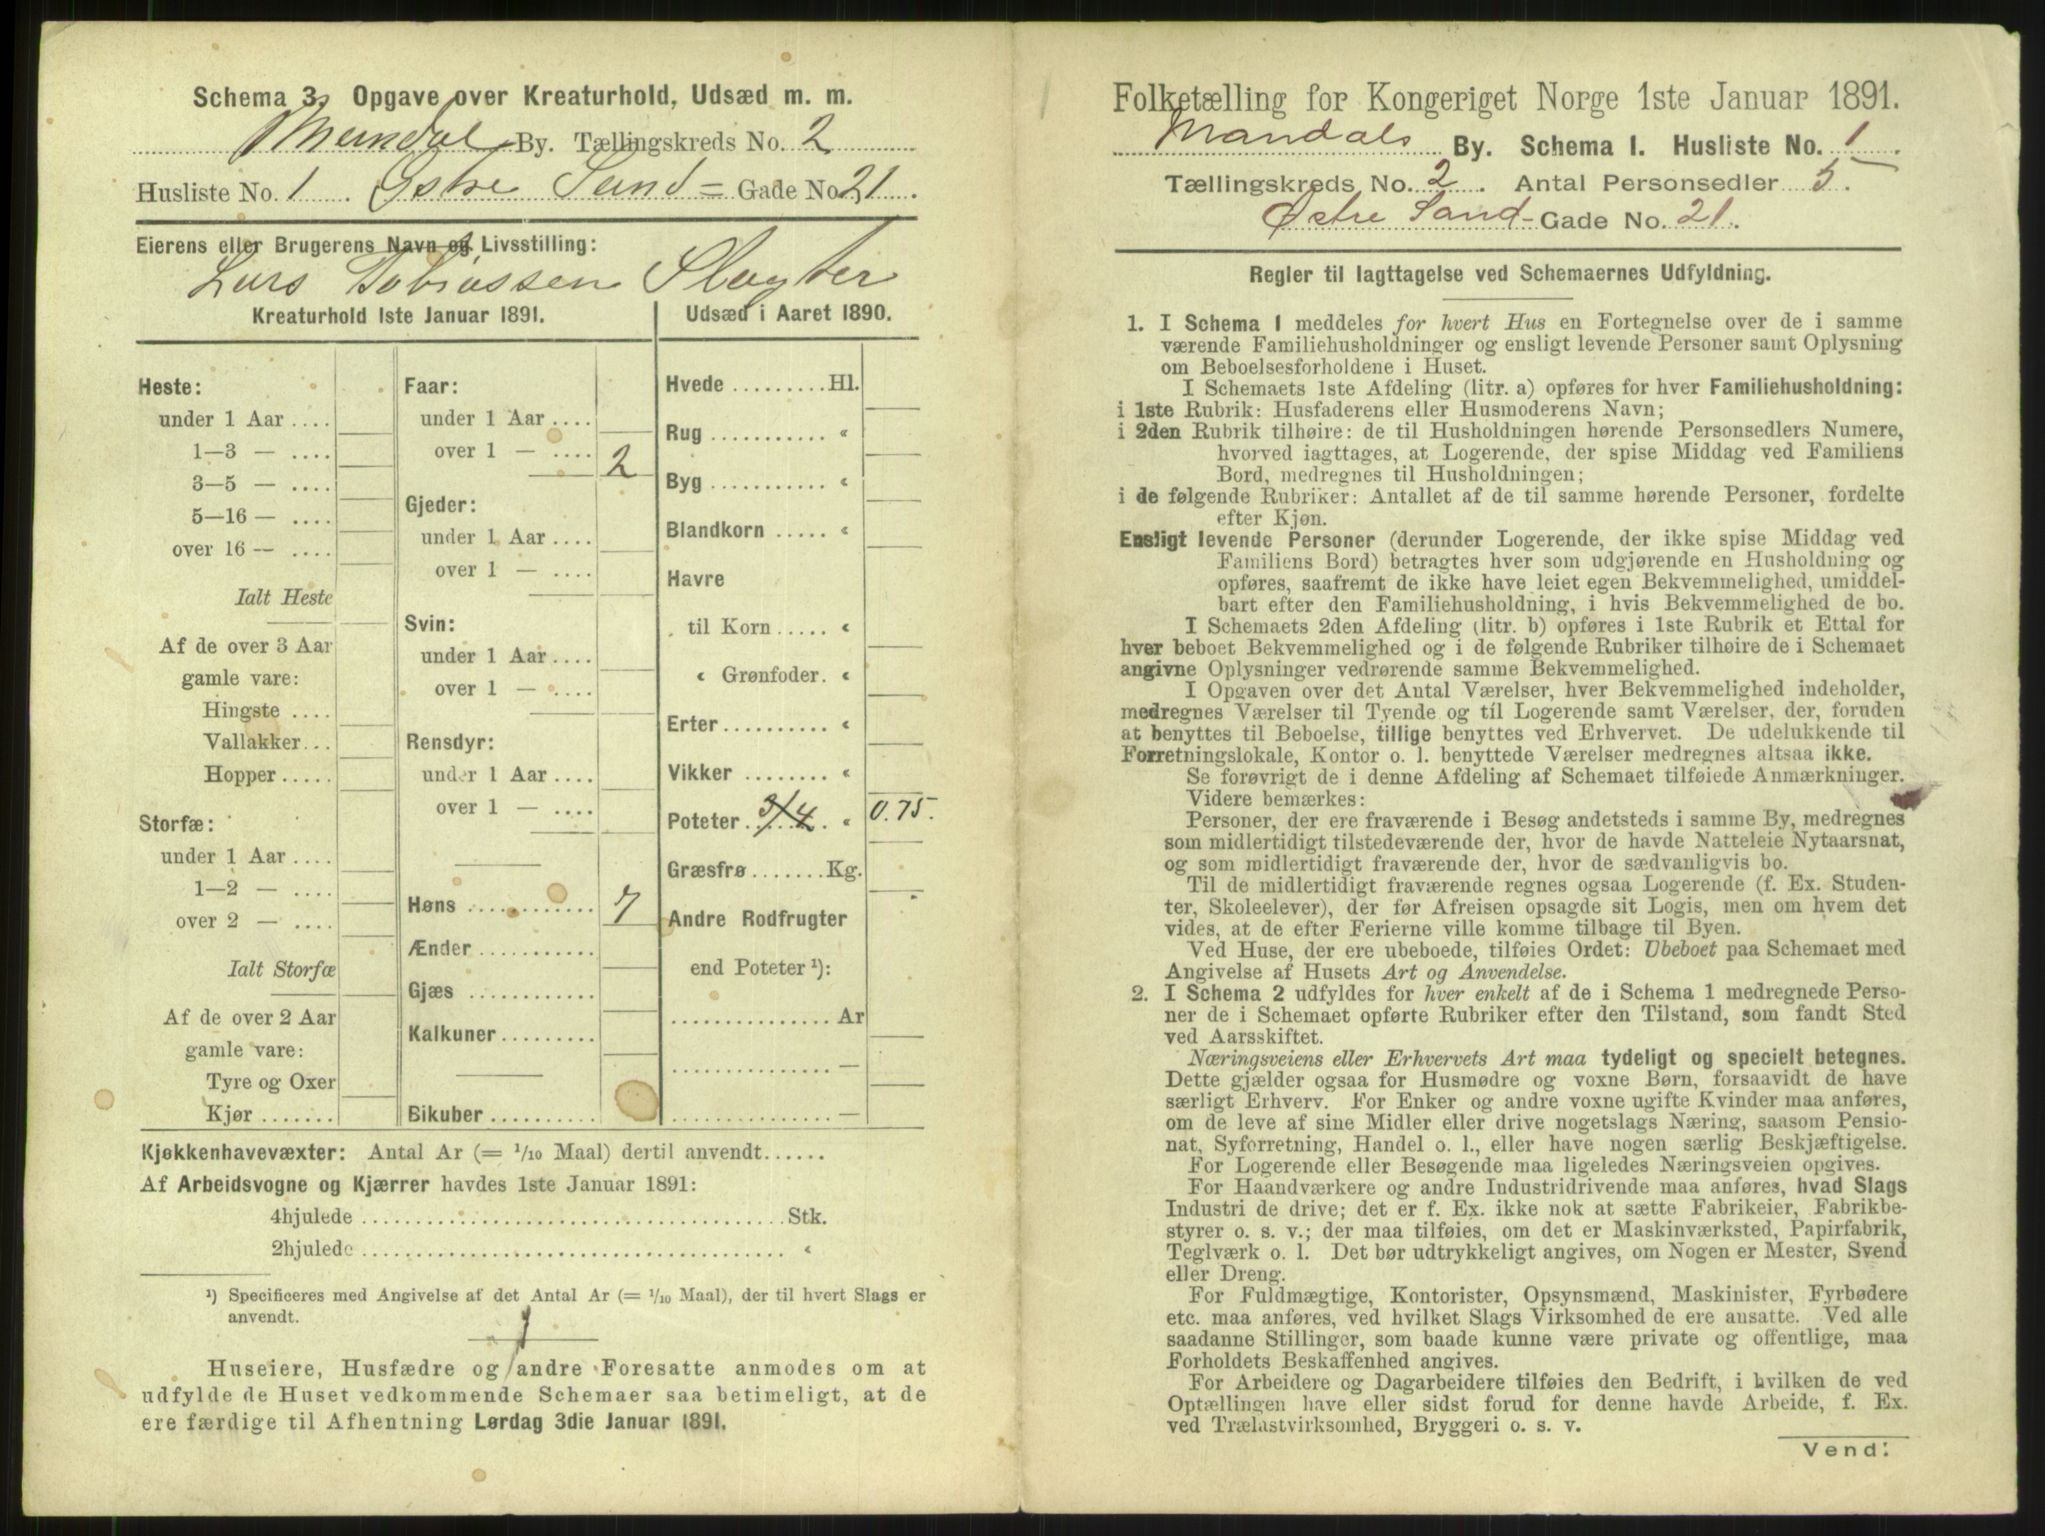 Schema 3. Opgave over Kreaturhold, Udsæd m. m.
Mandal By. Tællingskreds No. 2
Husliste No. 1 Østre Sand = Gade No. 21.
Eierens eller Brugerens Navn og Livsstilling:
Lars Tobiassen Slagter
Kreaturhold 1ste Januar 1891.
Heste:
under 1 Aar ....
1—3 — ....
3—5 — ....
5—16 — ....
over 16 — ....
Ialt Heste
Af de over 3 Aar
gamle vare:
Hingste ....
Vallakker...
Hopper.....
Storfæ:
under 1 Aar ....
1—2 — ....
over 2 — ....
Ialt Storfæ
Af de over 2 Aar
gamle vare:
Tyre og Oxer
Kjør.......
Faar:
under 1 Aar ....
over 1 — .... 2
Gjeder:
under 1 Aar ....
over 1 — ....
Svin:
under 1 Aar ....
over 1 — ....
Rensdyr:
under 1 Aar ....
over 1 — ....
Høns ............ 7
Ænder ...........
Gjæs ............
Kalkuner .........
Bikuber ..........
Udsæd i Aaret 1890.
Hvede .........Hl.
Rug ........... «
Byg ........... «
Blandkorn ..... «
Havre
til Korn ..... «
« Grønfoder. «
Erter .......... «
Vikker ........ «
Poteter 3/4 « 0.75.
Græsfrø .......Kg.
Andre Rodfrugter
end Poteter ¹):
............... Ar
............... —
............... —
Kjøkkenhavevæxter: Antal Ar (= 1/10 Maal) dertil anvendt......
Af Arbeidsvogne og Kjærrer havdes 1ste Januar 1891:
4hjulede ........................................ Stk.
2hjulede ........................................ «
¹) Specificeres med Angivelse af det Antal Ar (= 1/10 Maal), der til hvert Slags er
anvendt.
Huseiere, Husfædre og andre Foresatte anmodes om at
udfylde de Huset vedkommende Schemaer saa betimeligt, at de
ere færdige til Afhentning Lørdag 3die Januar 1891.
Folketælling for Kongeriget Norge 1ste Januar 1891.
Mandals By. Schema I. Husliste No. 1.
Tællingskreds No. 2. Antal Personsedler 5.
Østre Sand-Gade No. 21.
Regler til Iagttagelse ved Schemaernes Udfyldning.
1. I Schema 1 meddeles for hvert Hus en Fortegnelse over de i samme
værende Familiehusholdninger og ensligt levende Personer samt Oplysning
om Beboelsesforholdene i Huset.
I Schemaets 1ste Afdeling (litr. a) opføres for hver Familiehusholdning:
i 1ste Rubrik: Husfaderens eller Husmoderens Navn;
i 2den Rubrik tilhøire: de til Husholdningen hørende Personsedlers Numere,
hvorved iagttages, at Logerende, der spise Middag ved Familiens
Bord, medregnes til Husholdningen;
i de følgende Rubriker: Antallet af de til samme hørende Personer, fordelte
efter Kjøn.
Ensligt levende Personer (derunder Logerende, der ikke spise Middag ved
Familiens Bord) betragtes hver som udgjørende en Husholdning og
opføres, saafremt de ikke have leiet egen Bekvemmelighed, umiddel-
bart efter den Familiehusholdning, i hvis Bekvemmelighed de bo.
I Schemaets 2den Afdeling (litr. b) opføres i 1ste Rubrik et Ettal for
hver beboet Bekvemmelighed og i de følgende Rubriker tilhøire de i Schemaet
angivne Oplysninger vedrørende samme Bekvemmelighed.
I Opgaven over det Antal Værelser, hver Bekvemmelighed indeholder,
medregnes Værelser til Tyende og til Logerende samt Værelser, der, foruden
at benyttes til Beboelse, tillige benyttes ved Erhvervet. De udelukkende til
Forretningslokale, Kontor o. l. benyttede Værelser medregnes altsaa ikke.
Se forøvrigt de i denne Afdeling af Schemaet tilføiede Anmærkninger.
Videre bemærkes:
Personer, der ere fraværende i Besøg andetsteds i samme By, medregnes
som midlertidigt tilstedeværende der, hvor de havde Natteleie Nytaarsnat,
og som midlertidigt fraværende der, hvor de sædvanligvis bo.
Til de midlertidigt fraværende regnes ogsaa Logerende (f. Ex. Studen-
ter, Skoleelever), der før Afreisen opsagde sit Logis, men om hvem det
vides, at de efter Ferierne ville komme tilbage til Byen.
Ved Huse, der ere ubeboede, tilføies Ordet: Ubeboet paa Schemaet med
Angivelse af Husets Art og Anvendelse.
2. I Schema 2 udfyldes for hver enkelt af de i Schema 1 medregnede Perso-
ner de i Schemaet opførte Rubriker efter den Tilstand, som fandt Sted
ved Aarsskiftet.
Næringsveiens eller Erhvervets Art maa tydeligt og specielt betegnes.
Dette gjælder ogsaa for Husmødre og voxne Børn, forsaavidt de have
særligt Erhverv. For Enker og andre voxne ugifte Kvinder maa anføres,
om de leve af sine Midler eller drive nogetslags Næring, saasom Pensio-
nat, Syforretning, Handel o. l., eller have nogen særlig Beskjæftigelse.
For Logerende eller Besøgende maa ligeledes Næringsveien opgives.
For Haandværkere og andre Industridrivende maa anføres, hvad Slags
Industri de drive; det er f. Ex. ikke nok at sætte Fabrikeier, Fabrikbe-
styrer o. s. v.; der maa tilføies, om det er Maskinværksted, Papirfabrik,
Teglværk o. l. Det bør udtrykkeligt angives, om Nogen er Mester, Svend
eller Dreng.
For Fuldmægtige, Kontorister, Opsynsmænd, Maskinister, Fyrbødere
etc. maa anføres, ved hvilket Slags Virksomhed de ere ansatte. Ved alle
saadanne Stillinger, som baade kunne være private og offentlige, maa
Forholdets Beskaffenhed angives.
For Arbeidere og Dagarbeidere tilføies den Bedrift, i hvilken de ved
Optællingen have eller sidst forud for denne havde Arbeide, f. Ex.
ved Trælastvirksomhed, Bryggeri o. s. v.
Vend: